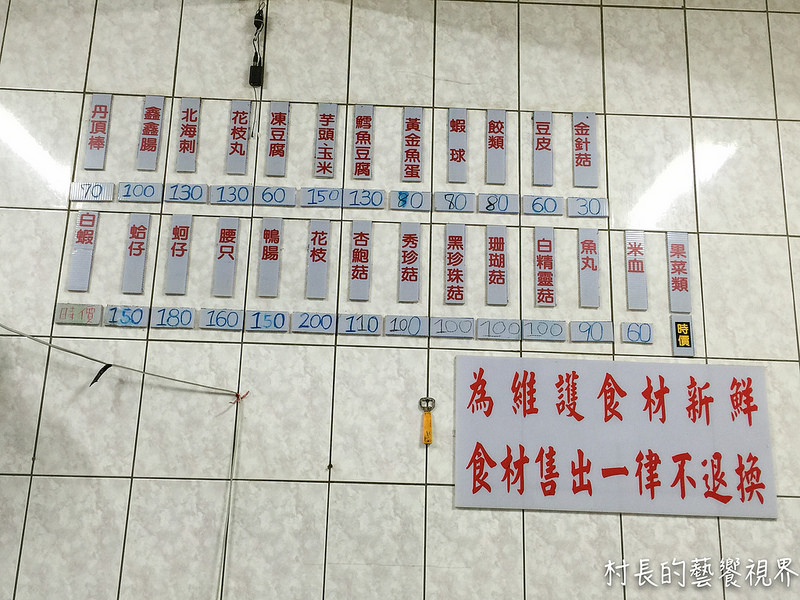 金針菇
30
豆皮
60
餃類
80
蝦球
80
黃金魚蛋
80
鱈魚豆腐
130
芋頭、玉米
150
凍豆腐
60
花枝丸
130
北海刺
130
鑫鑫腸
100
丹頂棒
70
果菜類
時價
米血
60
魚丸
90
白精靈菇
100
珊瑚菇
100
黑珍珠菇
100
秀珍菇
100
杏鮑菇
110
花枝
200
鴨腸
150
腰只
160
蚵仔
180
蛤仔
150
白蝦
時價
為維護食材新鮮
食材售出一律不退換
村長的藝饗視界